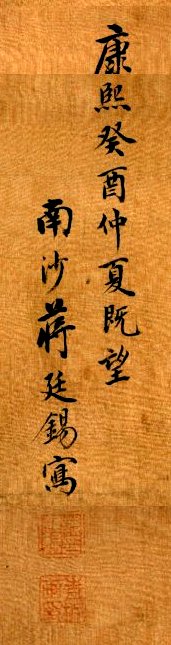 康熙癸酉仲夏既望
南沙蒋廷錫寫